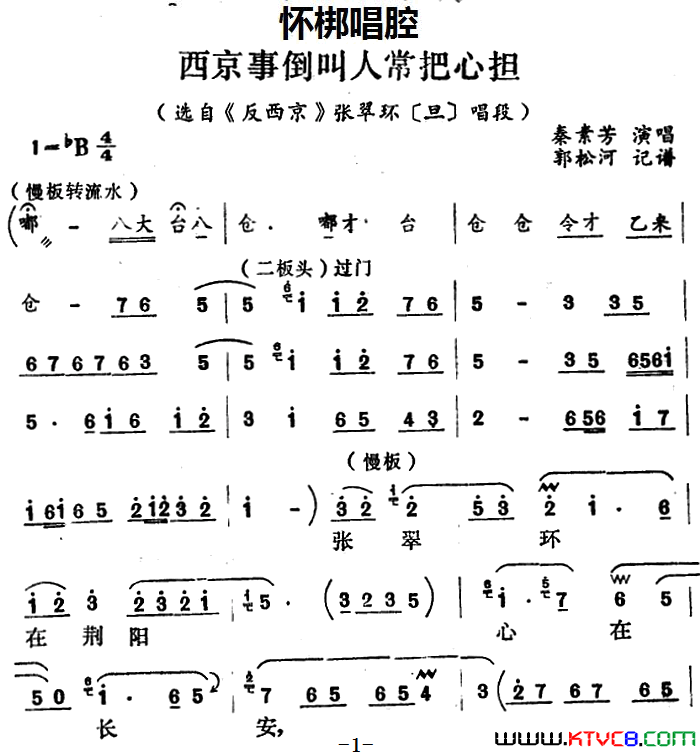 怀梆唱腔
西京事倒叫人常把心担
（选自《反西京》张翠环〔旦〕唱段）
1=♭B 4/4
秦素芳 演唱
郭松河 记谱
（慢板转流水）
（嘟 - 八大 台八 | 仓. 嘟才 台 | 仓 仓 令才 乙来 |
（二板头）过门
仓 - 76 5 | 5 i i2 76 | 5 - 3 35 |
676763 5 | 5 i i2 76 | 5 - 35 656i |
5. 6i6 i2 | 3 i 65 43 | 2 - 656 i7 |
（慢板）
i6i65 2i232 | i -） 32 2 53 2 i. 6 |
张 翠 环
i2 3 232i | 5. （3235） | i. 7 6 5
在 荆 阳 心 在
50 i. 65 | 7 65 654 | 3（27 67 65 |
长 安，
-1-
www.KTVC8.com